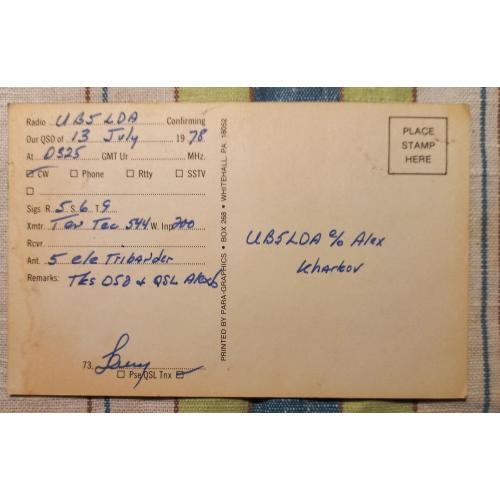 Radio UB5LDA Confirming
Our QSO of 13 July 1978
At 0325 GMT Ur MHz.
CW Phone Rtty SSTV
Sigs R. 5 S. 6 T. 9
Xmtr. Ten Tec 544 W. Inp 200
Rcvr.
Ant. 5 ele Tribander
Remarks: Tks QSO & QSL Alex
73,
Pse QSL Tnx
PRINTED BY PARA-GRAPHICS • BOX 268 • WHITEHALL, PA. 18052
PLACE
STAMP
HERE
UB5LDA c/o Alex
Kharkov